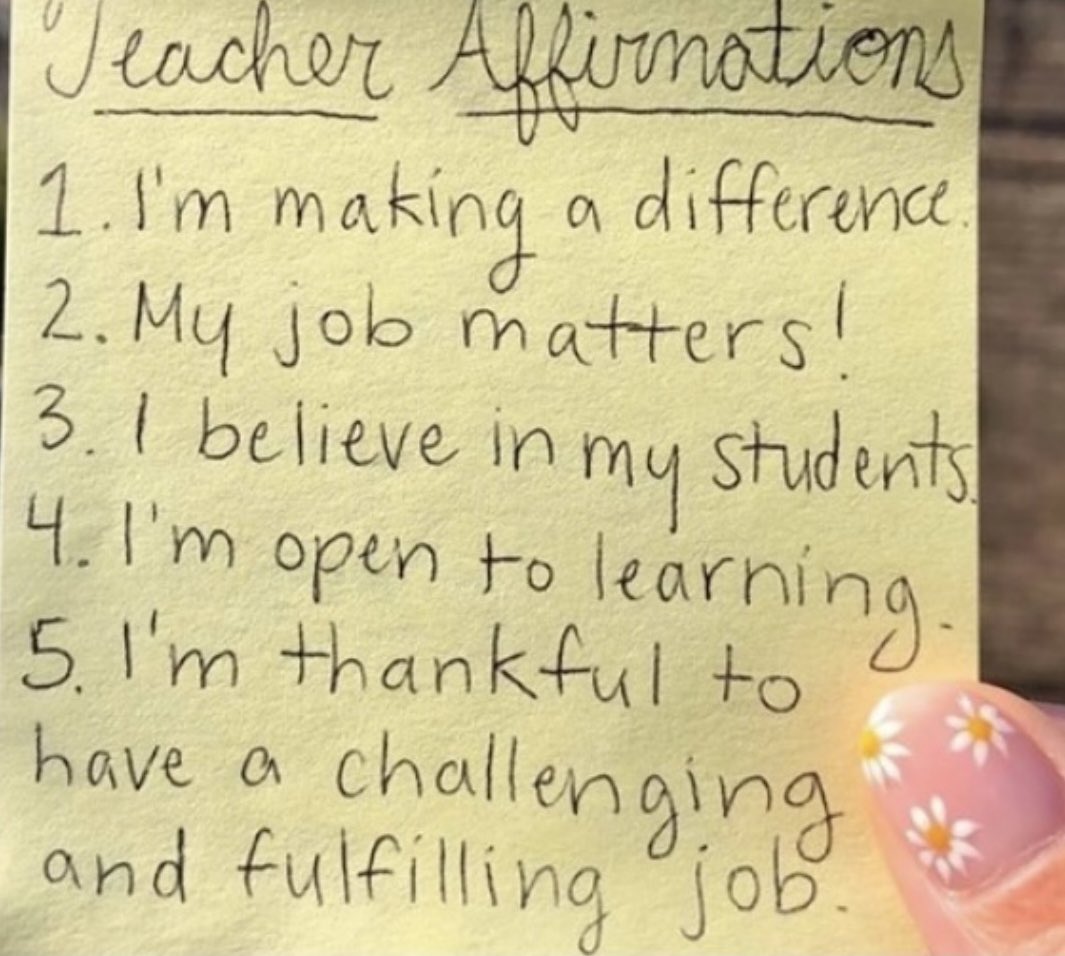 Teacher Affirmations
1. I'm making a difference.
2. My job matters!
3. I believe in my students.
4. I'm open to learning.
5. I'm thankful to
have a challenging
and fulfilling job.